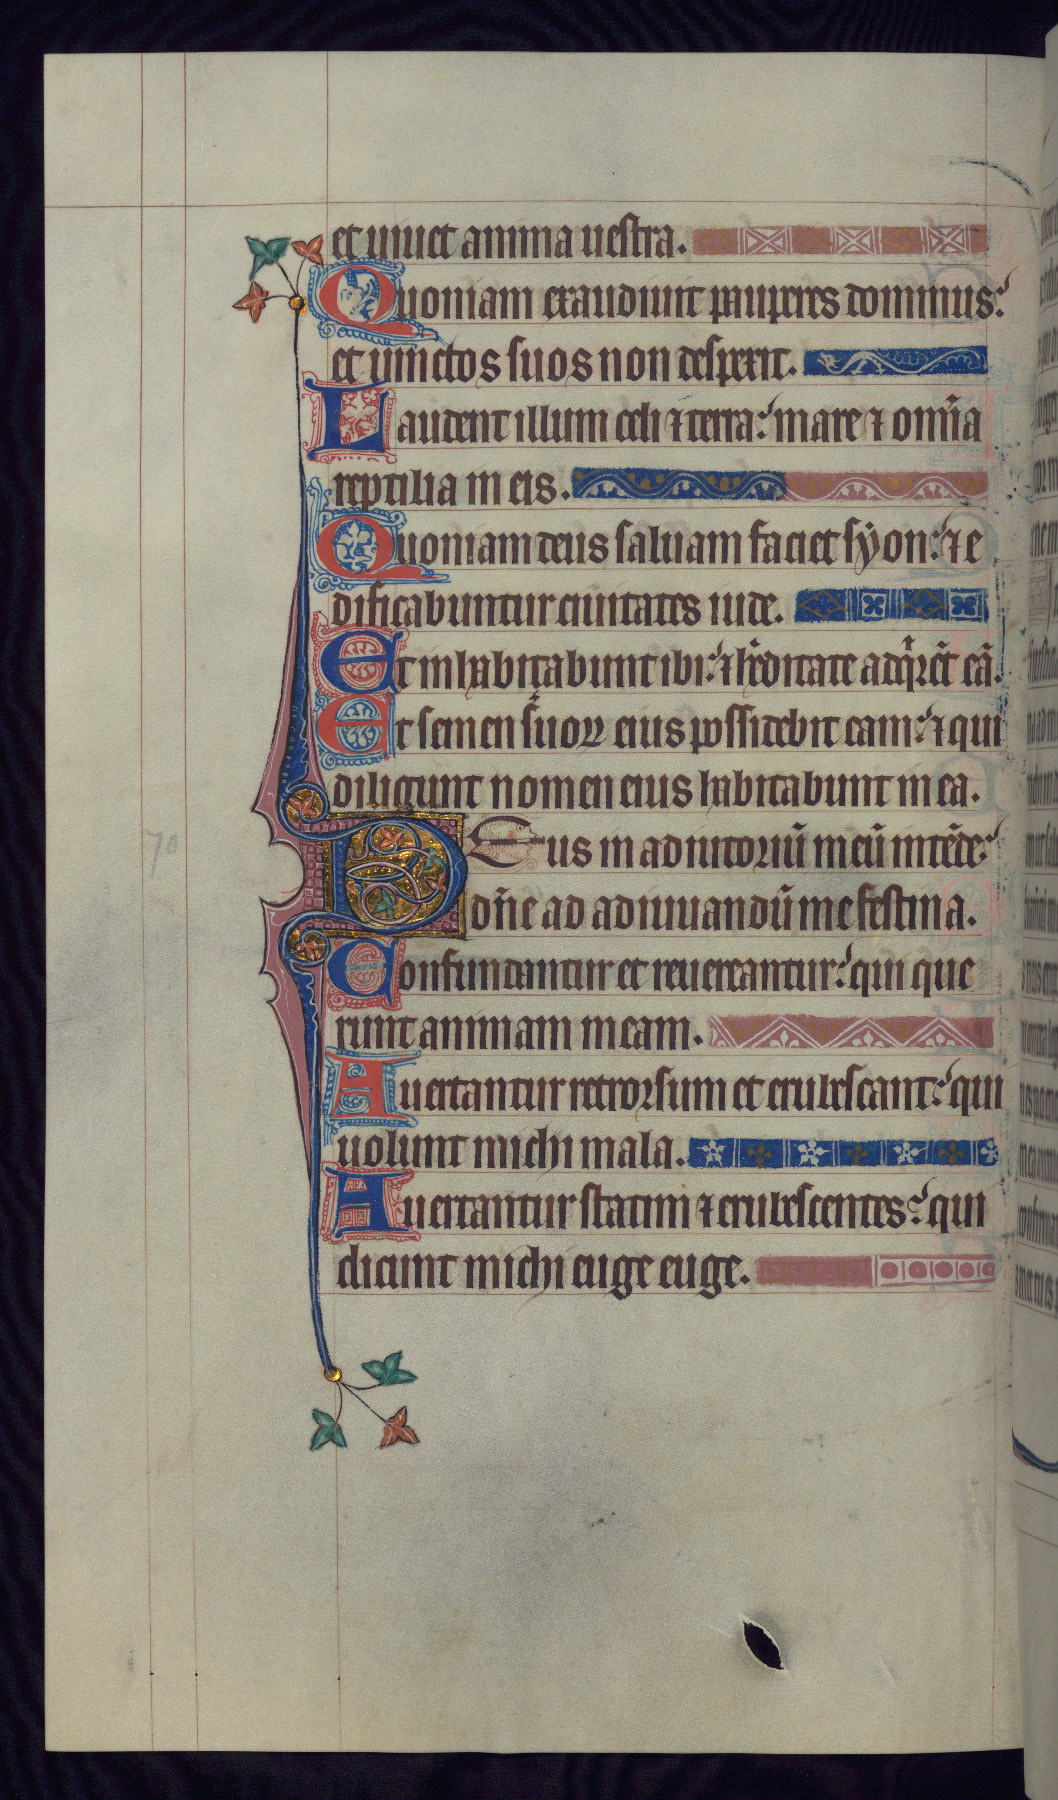 et uiuet anima uestra.
Quoniam exaudiuit pauperes dominus:
et uinctos suos non despexit.
Laudent illum celi ⁊ terra: mare ⁊ om̄ia
reptilia in eis.
Quoniam deus saluam faciet syon: ⁊ e
dificabuntur ciuitates iude.
Et inhabitabunt ibi: ⁊ h̄editate adq̇rēt eā.
Et semen suoꝝ eius possidebit eam: ⁊ qui
diligunt nomen eius habitabunt in ea.
Deus in adiutoriū meū intēde:
dn̄e ad adiuuandū me festina.
70
Confundantur et reuereantur: qui que
runt animam meam.
Auertantur retrorsum et erubescant: qui
uolunt michi mala.
Auertantur statim ⁊ erubescentes: qui
dicunt michi euge euge.